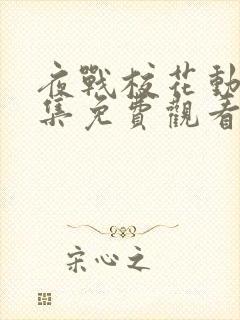 夜戰校花動
集免費觀看
宋心之